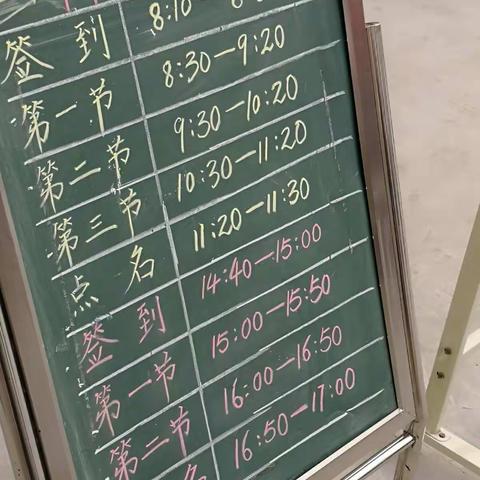 签到 8:10
第一节 8:30—9:20
第二节 9:30—10:20
第三节 10:30—11:20
点名 11:20—11:30
签到 14:40—15:00
第一节 15:00—15:50
第二节 16:00—16:50
名 16:50—17:00